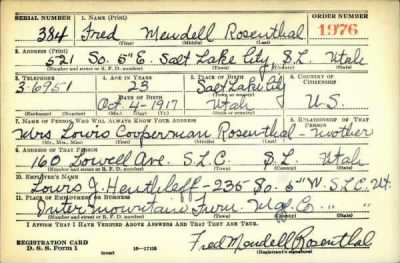 SERIAL NUMBER 1. NAME (Print) ORDER NUMBER
384 Fred Mendell Rosenthal 1976
(First) (Middle) (Last)
2. ADDRESS (Print)
521 So. 5th E. Salt Lake City S.L. Utah
(Number and street or R. F. D. number) (Town) (County) (State)
3. TELEPHONE 4. AGE IN YEARS 5. PLACE OF BIRTH 6. COUNTRY OF CITIZENSHIP
3-6951 23 Salt Lake City
DATE OF BIRTH (Town or county)
Oct. 4-1917 Utah U.S.
(Exchange) (Number) (Mo.) (Day) (Yr.) (State or country)
7. NAME OF PERSON WHO WILL ALWAYS KNOW YOUR ADDRESS 8. RELATIONSHIP OF THAT PERSON
Mrs Louis Cooperman Rosenthal - Mother
(Mr., Mrs., Miss) (First) (Middle) (Last)
9. ADDRESS OF THAT PERSON
160 Lowell Ave. S.L.C. S.L. Utah
(Number and street or R. F. D. number) (Town) (County) (State)
10. EMPLOYER'S NAME
Louis J. - 235 So. 5th W. S.L.C. Ut.
11. PLACE OF EMPLOYMENT OR BUSINESS
Intermountain Furn. Mfg. Co. " "
(Number and street or R. F. D. number) (Town) (County) (State)
I AFFIRM THAT I HAVE VERIFIED ABOVE ANSWERS AND THAT THEY ARE TRUE.
REGISTRATION CARD
D. S. S. Form 1 (over) 16—17105 Fred Mendell Rosenthal
(Registrant's signature)